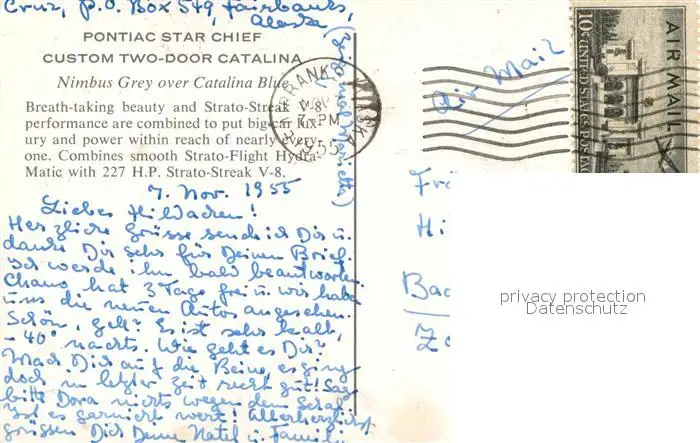 Cruz, P.O. Box 549, Fairbanks,
Alaska
PONTIAC STAR CHIEF
CUSTOM TWO-DOOR CATALINA
Nimbus Grey over Catalina Blue
Breath-taking beauty and Strato-Streak
performance are combined to put big-car lux-
ury and power within reach of nearly every-
one. Combines smooth Strato-Flight Hydra-
Matic with 227 H.P. Strato-Streak V-8.
7. Nov. 1955
Liebes Hildachen!
Herzliche Grüsse sende ich Dir u.
danke Dir sehr für Deinen Brief.
Ich werde ihn bald beantworten.
Chano hat 3 Tage frei u. wir haben
uns die neuen Autos angesehen.
Schön, gelt? Es ist sehr kalt,
- 40° nachts. Wie geht es Dir?
Mach Dich auf die Beine, es ging
doch in letzter Zeit recht gut! Sag
bitte Dora nichts wegen dem
es garnicht wert! Allerherzlichst
grüssen Dich Deine Natel u. Familie
ALASKA
7 PM
55
Air Mail
AIR MAIL
10¢ UNITED STATES POSTAGE
Frä
Hi
Bad
privacy protection
Datenschutz